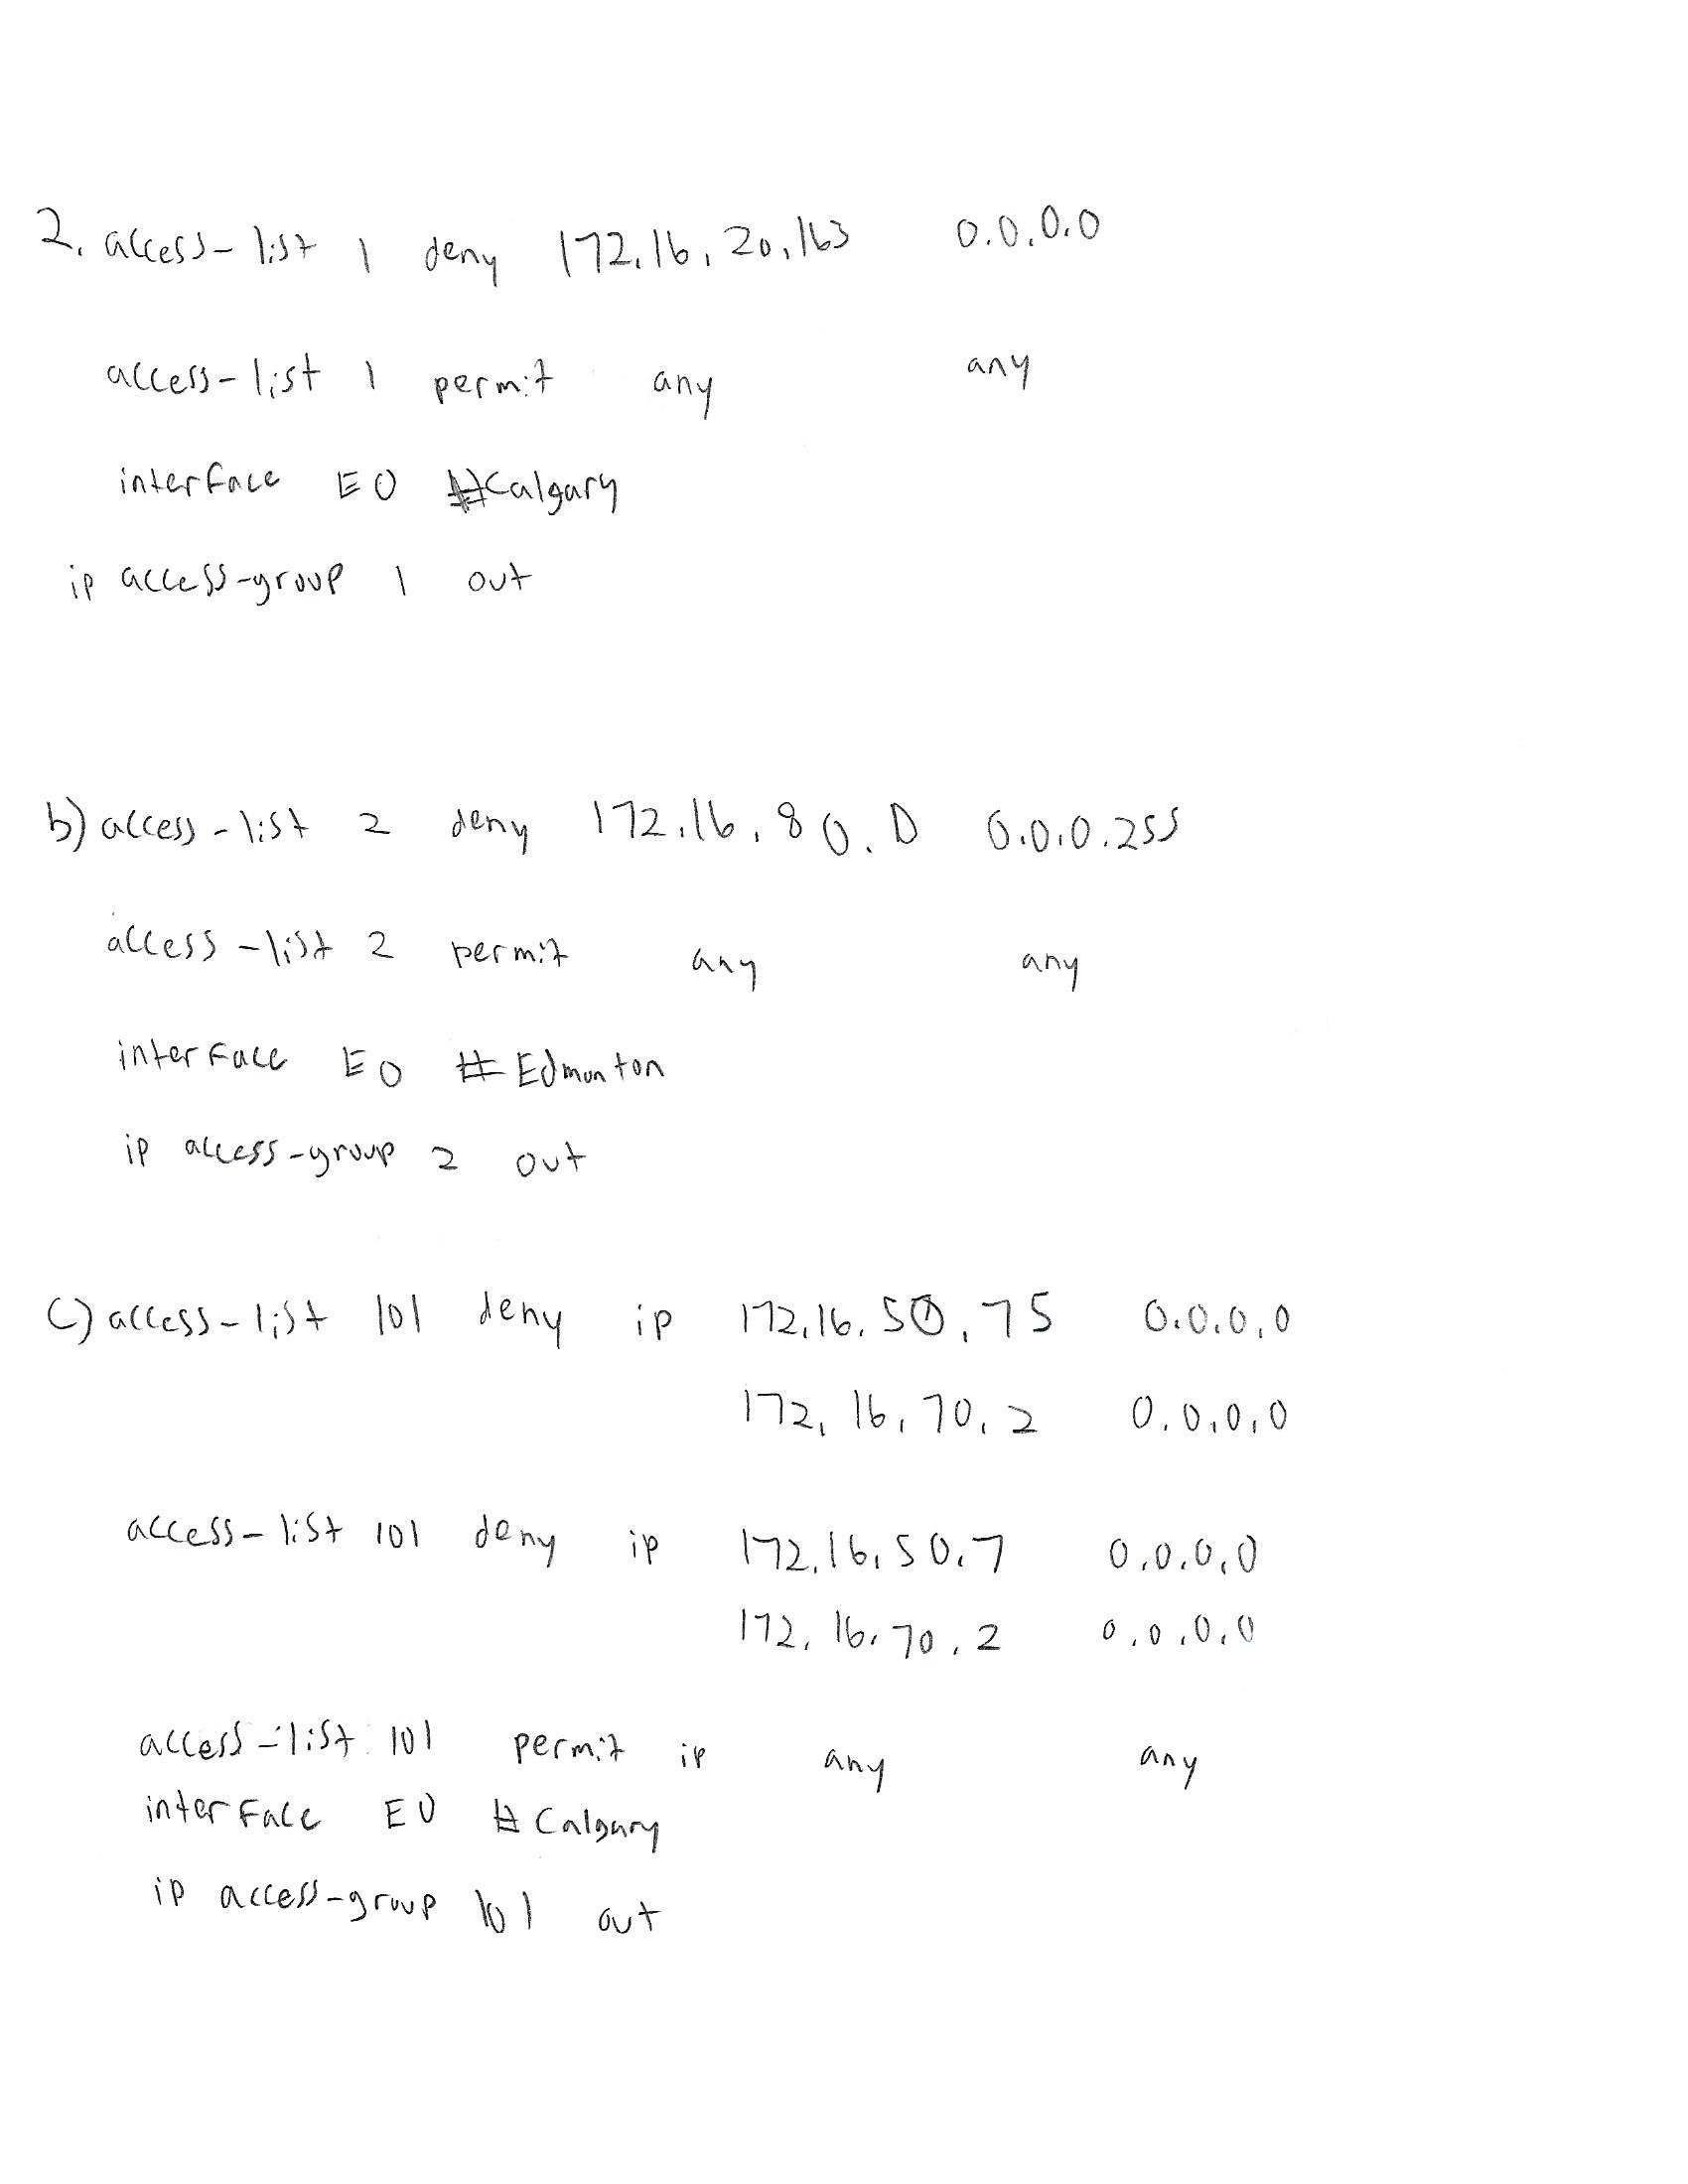 2. access-list 1 deny 172.16.20.163 0.0.0.0
access-list 1 permit any any
interface E0 #Calgary
ip access-group 1 out
b) access-list 2 deny 172.16.80.0 0.0.0.255
access-list 2 permit any any
interface E0 #Edmonton
ip access-group 2 out
c) access-list 101 deny ip 172.16.50.75 0.0.0.0
172.16.70.2 0.0.0.0
access-list 101 deny ip 172.16.50.7 0.0.0.0
172.16.70.2 0.0.0.0
access-list 101 permit ip any any
interface E0 #Calgary
ip access-group 101 out